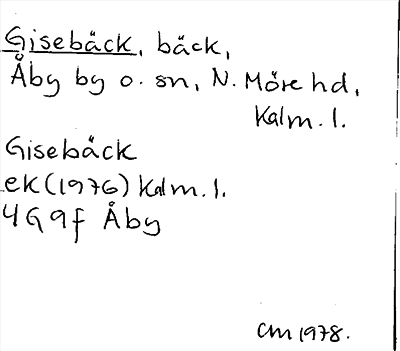 Gisebäck, bäck,
Åby by o. sn, N. Möre hd,
Kalm. l.
Gisebäck
ek (1976) Kalm. l.
4G9f Åby
CM 1978.